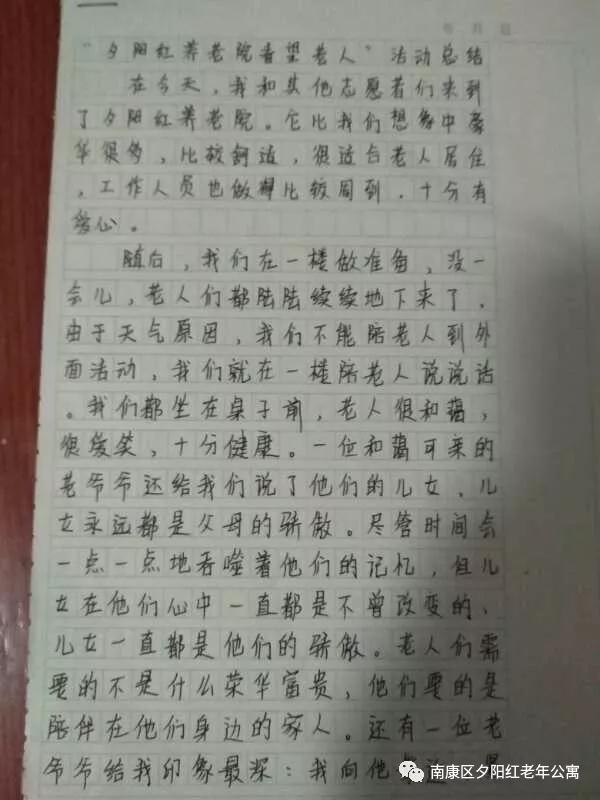 “夕阳红养老院看望老人”活动总结
在今天，我和其他志愿者们来到
了夕阳红养老院。它比我们想象中豪
华很多，比较舒适，很适合老人居住
，工作人员也做得比较周到，十分有
爱心。
随后，我们在一楼做准备，没一
会儿，老人们都陆陆续续地下来了，
由于天气原因，我们不能陪老人到外
面活动，我们就在一楼陪老人说说话
。我们都坐在桌子前，老人很和蔼，
很爱笑，十分健康。一位和蔼可亲的
老爷爷还给我们说了他们的儿女，儿
女永远都是父母的骄傲。尽管时间会
一点一点地吞噬着他们的记忆，但儿
女在他们心中一直都是不曾改变的、
儿女一直都是他们的骄傲。老人们需
要的不是什么荣华富贵，他们要的是
陪伴在他们身边的家人。还有一位老
爷爷给我印象最深：我向他
南康区夕阳红老年公寓